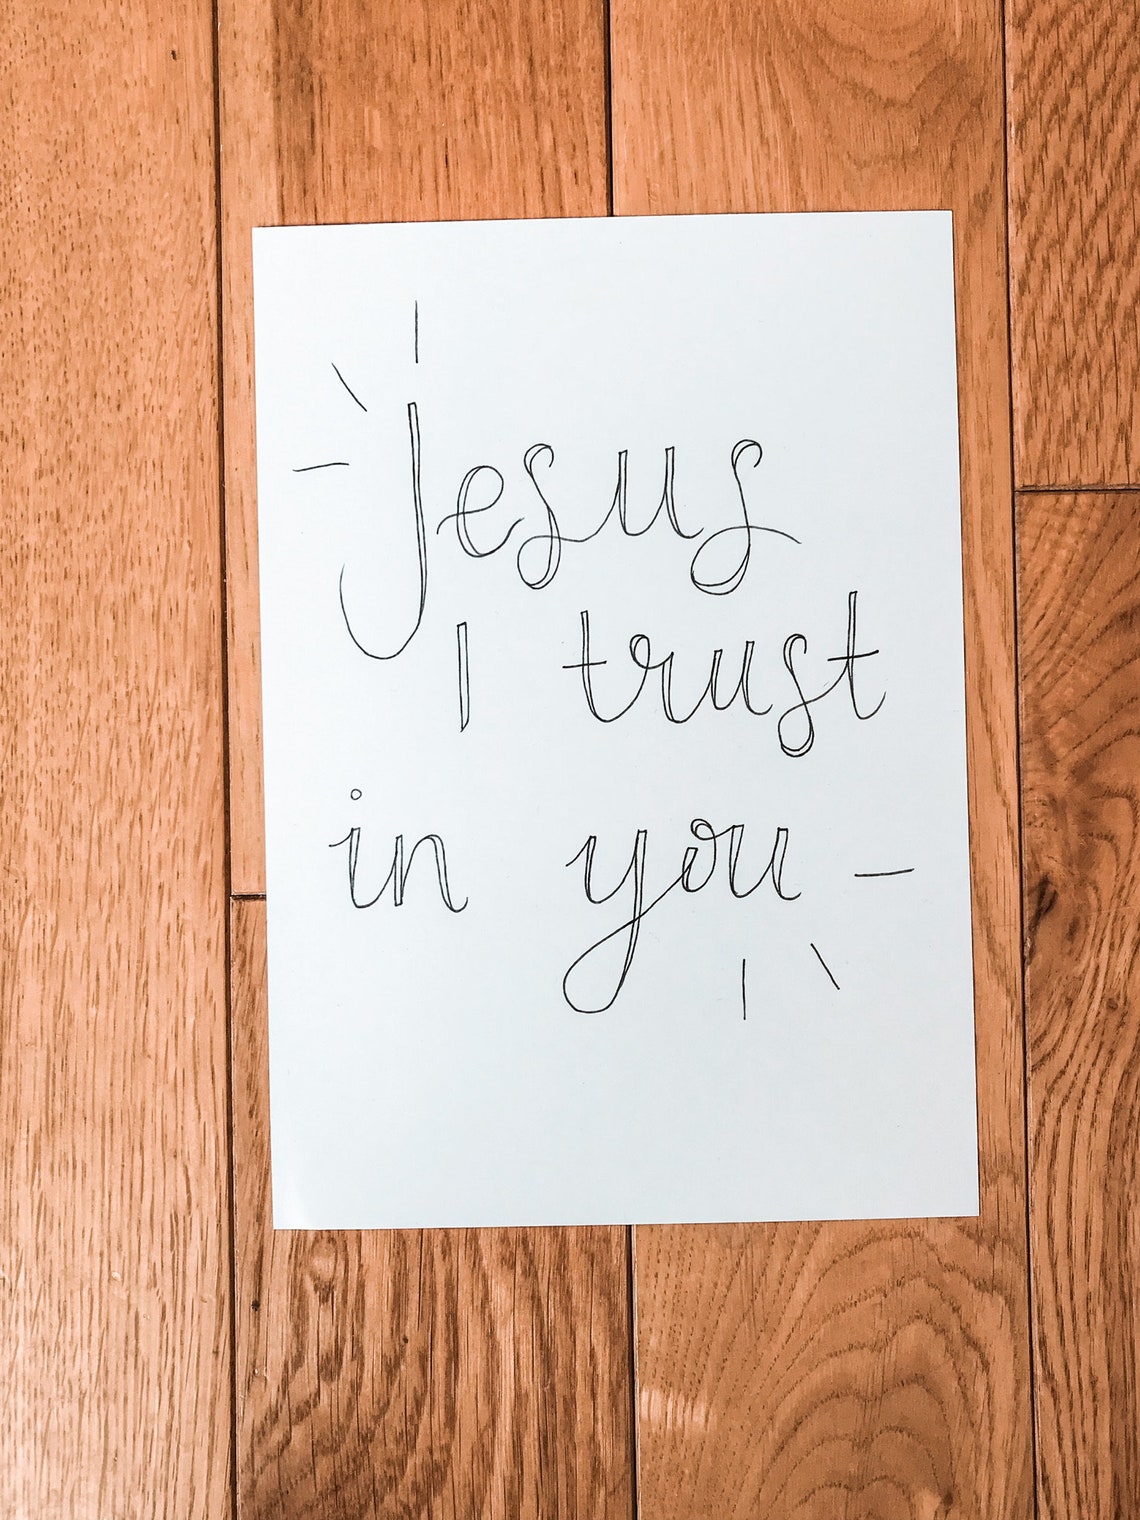 Jesus
I trust
in you